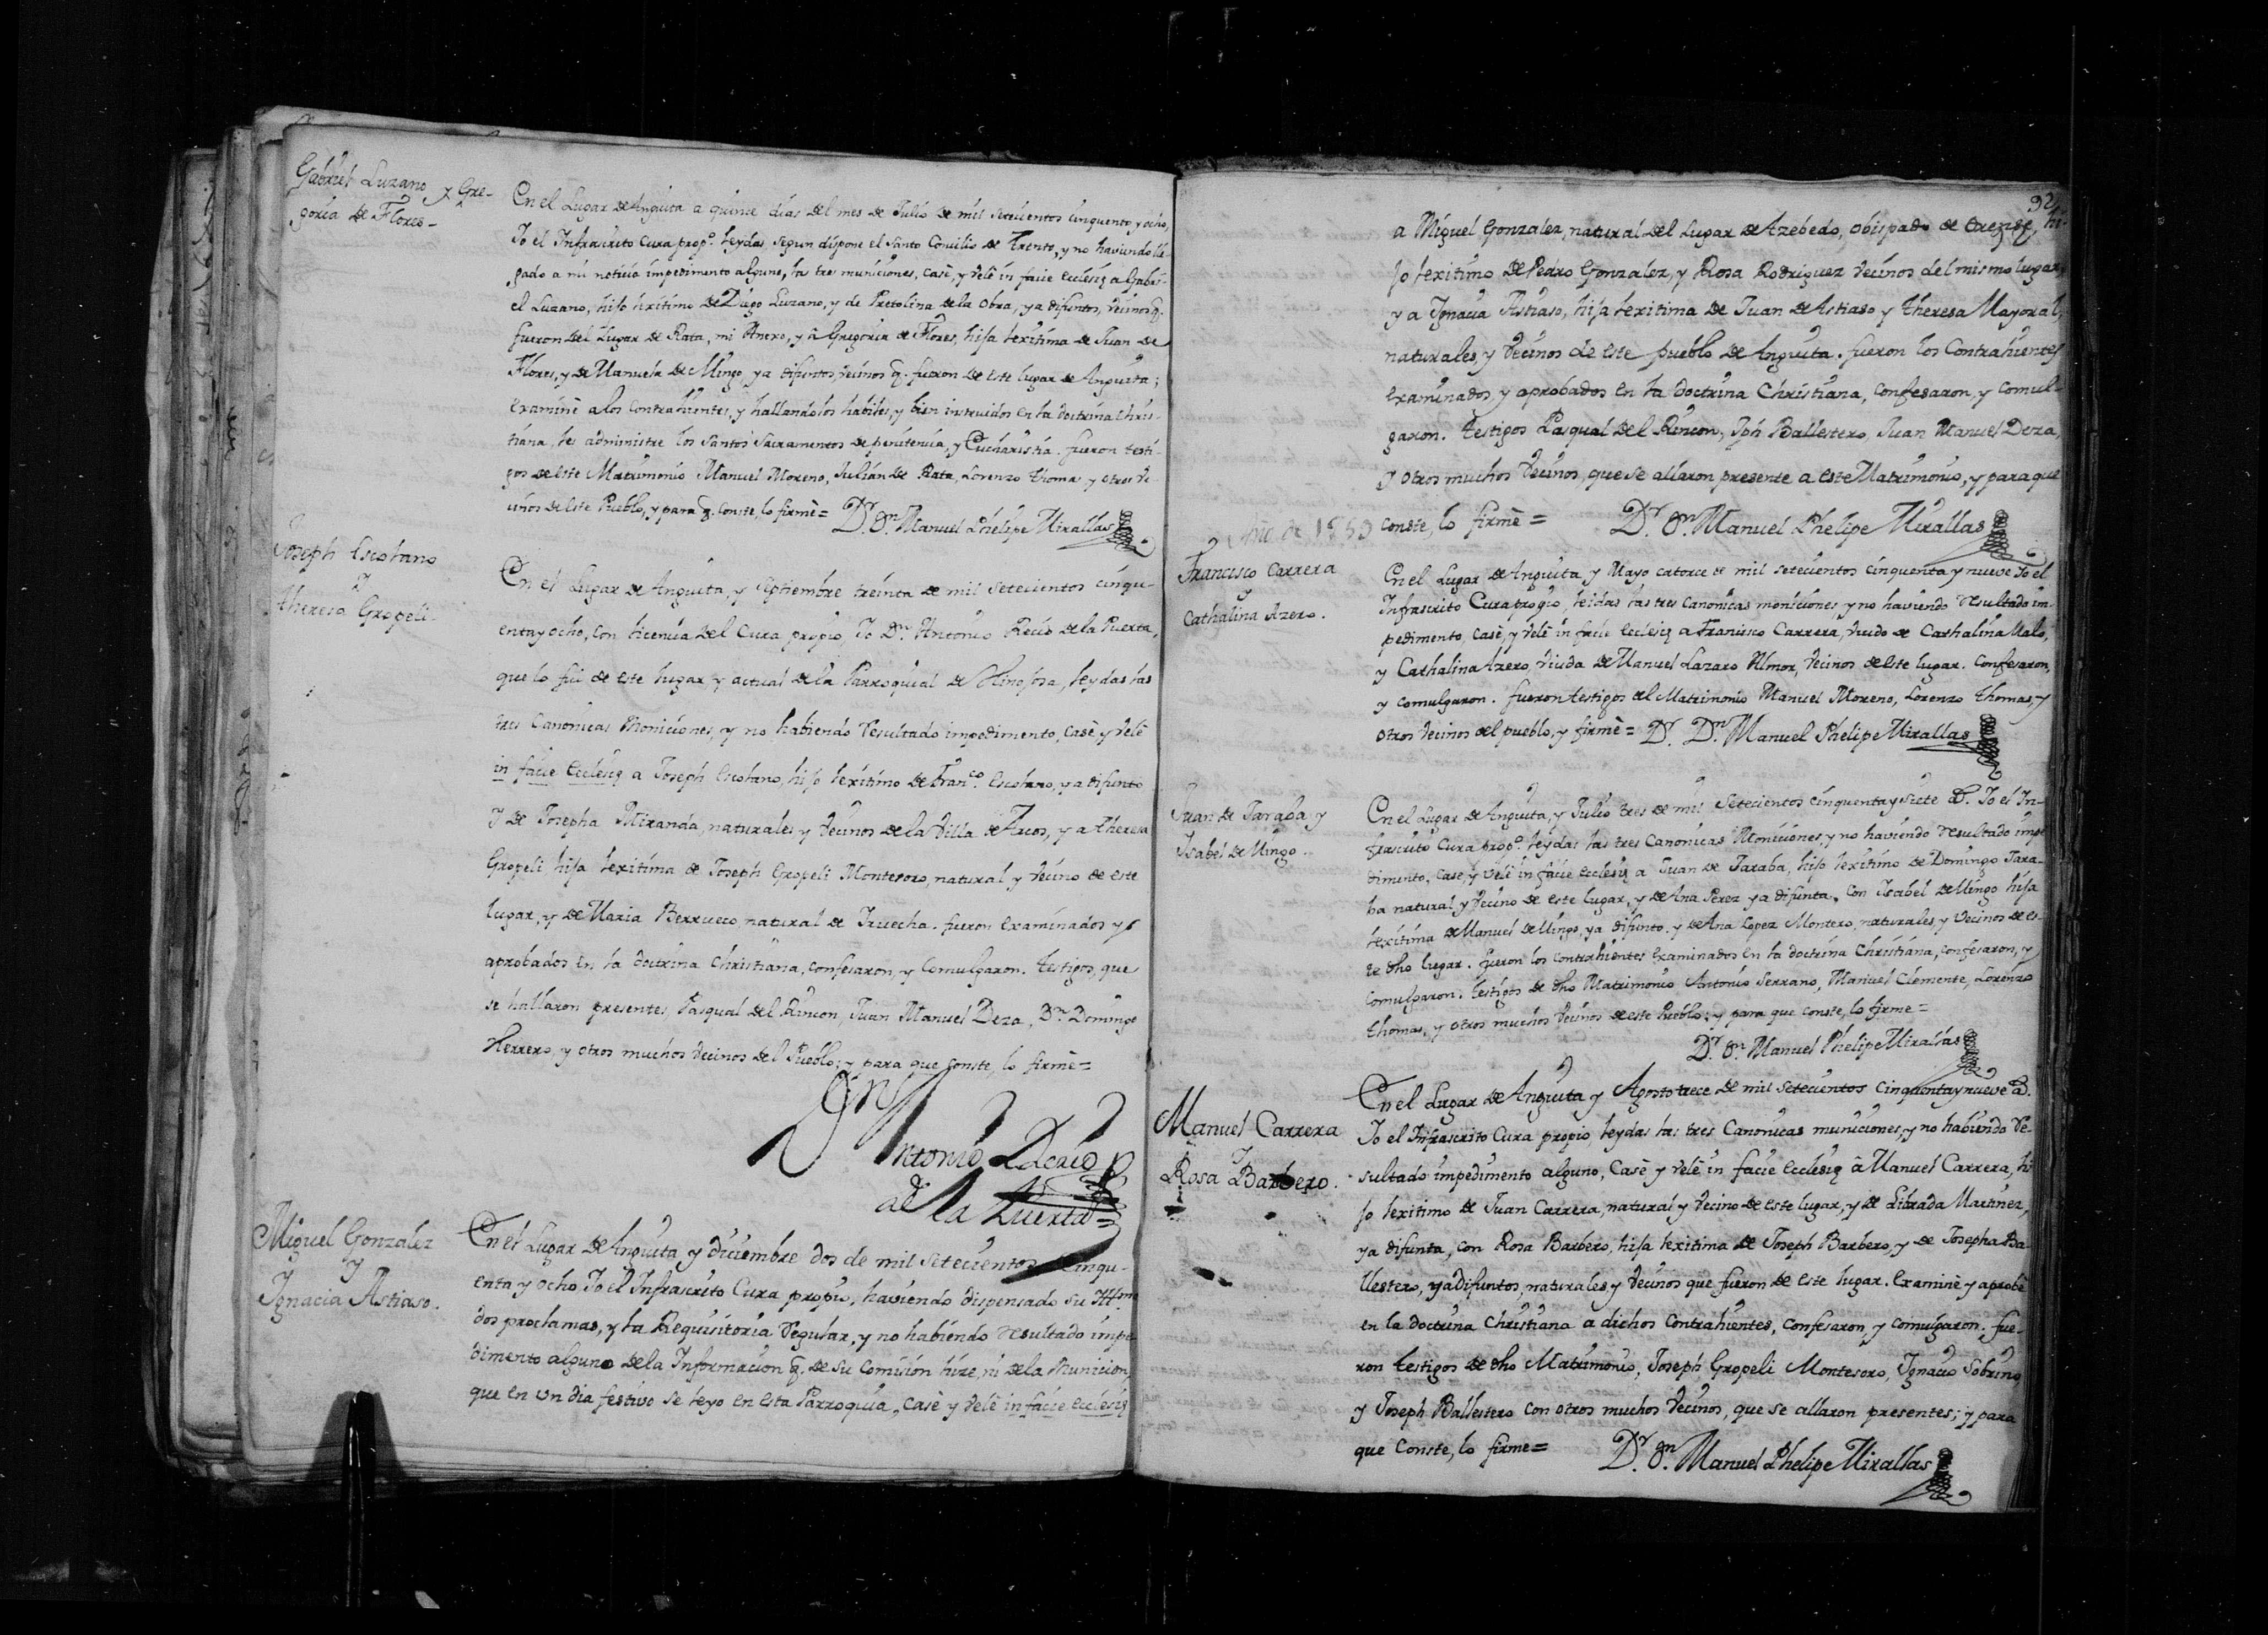 Gabriel Luzano y Gre-
goria de Flores-
En el Lugar de Anguita a quince dias del mes de Julio de mil setecientos cinquenta y ocho,
Yo el Infrascrito Cura prop.o leydas, segun dispone el Santo Concilio de Trento, y no haviendo lle-
gado a mi noticia impedimento alguno, las tres municiones, casè, y velè in facie Ecclesię a Gabri-
el Luzano, hijo lexitimo de Diego Luzano, y de Petolina de la Obra, ya difuntos, vecinos q.
fueron del Lugar de Rata, mi Anexo, y â Gregoria de Flores, hija lexitima de Juan de
Flores, y de Manuela de Mingo ya difuntos, vecinos q. fueron de este lugar de Anguita;
examinè a los contrahientes, y hallandolos habiles, y bien instruidos en la doctrina chris-
tiana, les administre los Santos Sacramentos de penitencia, y Eucharistia. fueron testi-
gos de este Matrimonio Manuel Moreno, Julian de Rata, Lorenzo Thomas y otros ve-
cinos de este Pueblo, y para q. conste, lo firmè= D.r D.n Manuel Phelipe Mirallas
Joseph Escolano
y
Theresa Gropeli.
En el Lugar de Anguita, y septiembre treinta de mil setecientos cinqu-
enta y ocho, con licencia del Cura propio, Yo D.n Antonio Recio de la Puerta,
que lo fui de este lugar, y actual de la Parroquial de Hinojosa, leydas las
tres Canonicas Moniciones, y no habiendo resultado impedimento, casè y velè
in facie Ecclesię a Joseph Escolano, hijo lexitimo de Fran.co Escolano, ya difunto
y de Josepha Miranda, naturales y vecinos de la Villa de Arcos, y a Theresa
Gropeli hija lexitima de Joseph Gropeli Montesoro, natural y vecino de este
lugar, y de Maria Berrueco natural de Iruecha. fueron examinados y
aprobados en la doctrina christiana, confesaron, y comulgaron. testigos, que
se hallaron presentes, Pasqual del Rincon, Juan Manuel Deza, D.n Domingo
Herrero, y otros muchos vecinos del Pueblo; y para que conste, lo firmè=
D.n Antonio Recio
de la Puerta=
Miguel Gonzalez
y
Ignacia Astiaso.
En el Lugar de Anguita y diciembre dos de mil setecientos cinqu-
enta y ocho Yo el Infrascrito Cura propio, haviendo dispensado su Ill.ma
dos proclamas, y la Requisitoria regular, y no habiendo resultado impe-
dimento alguno de la Informacion q. de su comision hize, ni de la Municion,
que en un dia festivo se leyo en esta Parroquia, casè y velè in facie Ecclesię
92
a Miguel Gonzalez, natural del Lugar de Azebedo, obispado de Orense, hi-
jo lexitimo de Pedro Gonzalez, y Rosa Rodriguez vecinos del mismo lugar,
y a Ignacia Astiaso, hija lexitima de Juan de Astiaso y Theresa Mayoral,
naturales, y vecinos de este pueblo de Anguita. fueron los Contrahientes
examinados y aprobados en la doctrina Christiana, confesaron, y comul-
garon. testigos Pasqual del Rincon, Jph Ballestero, Juan Manuel Deza,
y otros muchos vecinos, que se allaron presente a este Matrimonio, y para que
conste, lo firmè= D.r D.n Manuel Phelipe Mirallas
Francisco Carrera
y
Cathalina Azero.
En el Lugar de Anguita y Mayo catorce de mil setecientos cinquenta y nueve Yo el
Infrascrito Cura propio, leidas las tres canonicas moniciones, y no haviendo resultado im-
pedimento, casè, y velè in facie Ecclesię a Francisco Carrera, viudo de Cathalina Malo,
y Cathalina Azero, viuda de Manuel Lazaro Almor, vecinos de este lugar. Confesaron,
y comulgaron. fueron testigos del Matrimonio Manuel Moreno, Lorenzo Thomas, y
otros vecinos del pueblo, y firmè= D.r D.n Manuel Phelipe Mirallas
Juan de Taraba y
Isabel de Mingo.
En el Lugar de Anguita, y Julio tres de mil setecientos cinquenta y siete a. Yo el In-
frascrito Cura prop.o leydas las tres Canonicas Moniciones, y no haviendo resultado impe
dimento, case, y velè in facie Ecclesię a Juan de Taraba, hijo lexitimo de Domingo Tara-
ba natural, y vecino de este lugar, y de Ana Perez ya difunta, con Isabel de Mingo hija
lexitima de Manuel de Mingo, ya difunto, y de Ana Lopez Montero, naturales, y vecinos de es-
te dho lugar. fueron los contrahientes examinados en la doctrina Christiana, confesaron, y
comulgaron. testigos de dho Matrimonio Antonio Serrano, Manuel Clemente, Lorenzo
Thomas, y otros muchos vecinos de este Pueblo; y para que conste, lo firme=
D.r D.n Manuel Phelipe Mirallas
Manuel Carrera
y
Rosa Barbero.
En el Lugar de Anguita y Agosto trece de mil setecientos cinquenta y nueve a.
Yo el Infrascrito Cura propio leydas las tres Canonicas municiones, y no habiendo re-
sultado impedimento alguno, Casè y velè in facie Ecclesię â Manuel Carrera, hi
jo lexitimo de Juan Carrera, natural y vecino de este lugar, y de Librada Martinez,
ya difunta, con Rosa Barbero, hija lexitima de Joseph Barbero, y de Josepha Ba-
llestero, ya difuntos, naturales, y vecinos que fueron de este lugar. Examinè y aprobè
en la doctrina Christiana a dichos Contrahientes, confesaron, y comulgaron. fue-
ron testigos de dho Matrimonio, Joseph Gropeli Montesoro, Ignacio Sobrino,
y Joseph Ballestero con otros muchos vecinos, que se allaron presentes; y para
que conste, lo firme= D.r D.n Manuel Phelipe Mirallas